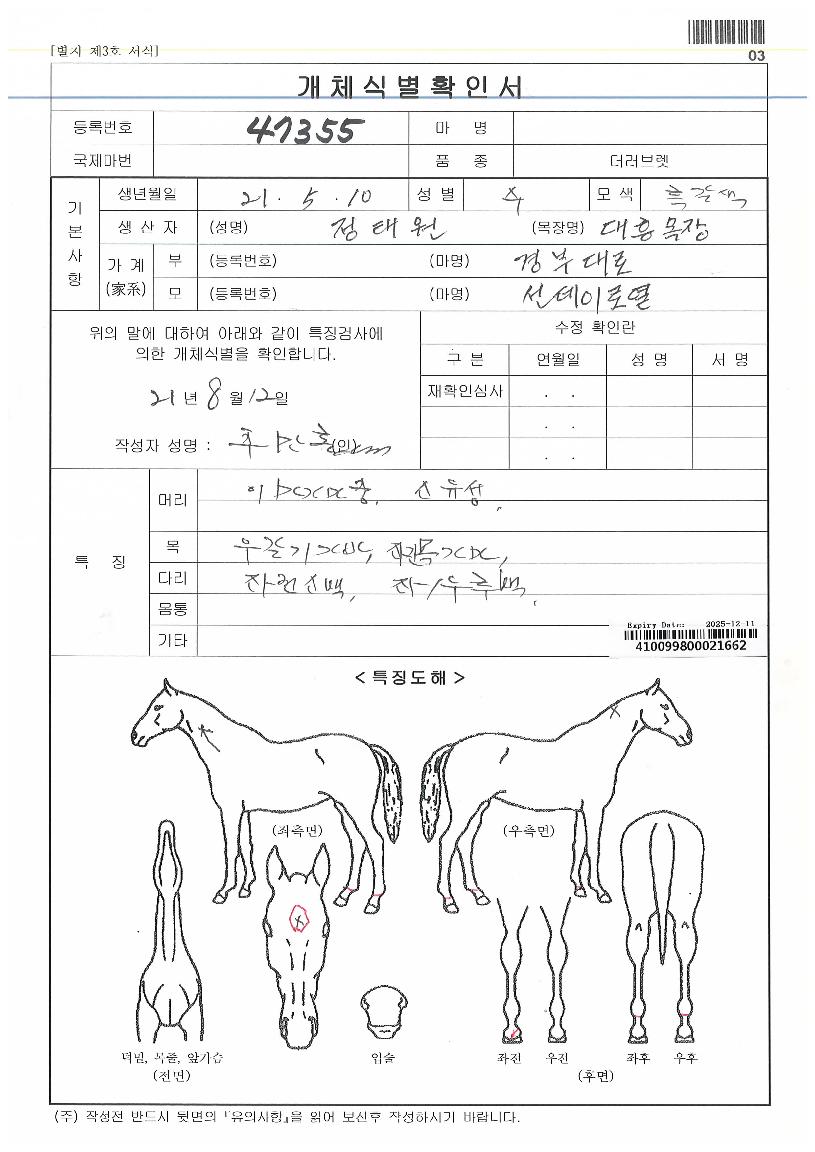 [별지 제3호 서식]
03
개체식별확인서
등록번호 47355 마 명
국제마번 품 종 더러브렛
기본사항
생년월일 21 . 5 . 10 성 별 수 모 색 흑갈색
생 산 자 (성명) 정태원 (목장명) 대흥목장
가 계 (家系) 부 (등록번호) (마명) 경부대로
모 (등록번호) (마명) 선데이로열
위의 말에 대하여 아래와 같이 특징검사에
의한 개체식별을 확인합니다.
21 년 8 월 12 일
작성자 성명 : (인)
수정 확인란
구 분 연월일 성 명 서 명
재확인심사 . .
. .
. .
특 징
머리
목
다리
몸통
기타
Expiry Date: 2025-12-11
410099800021662
< 특징도해 >
(좌측면) (우측면)
턱밑, 목줄, 앞가슴
(전면)
입술
좌전 우전 좌후 우후
(후면)
(주) 작성전 반드시 뒷면의 『유의사항』을 읽어 보신후 작성하시기 바랍니다.